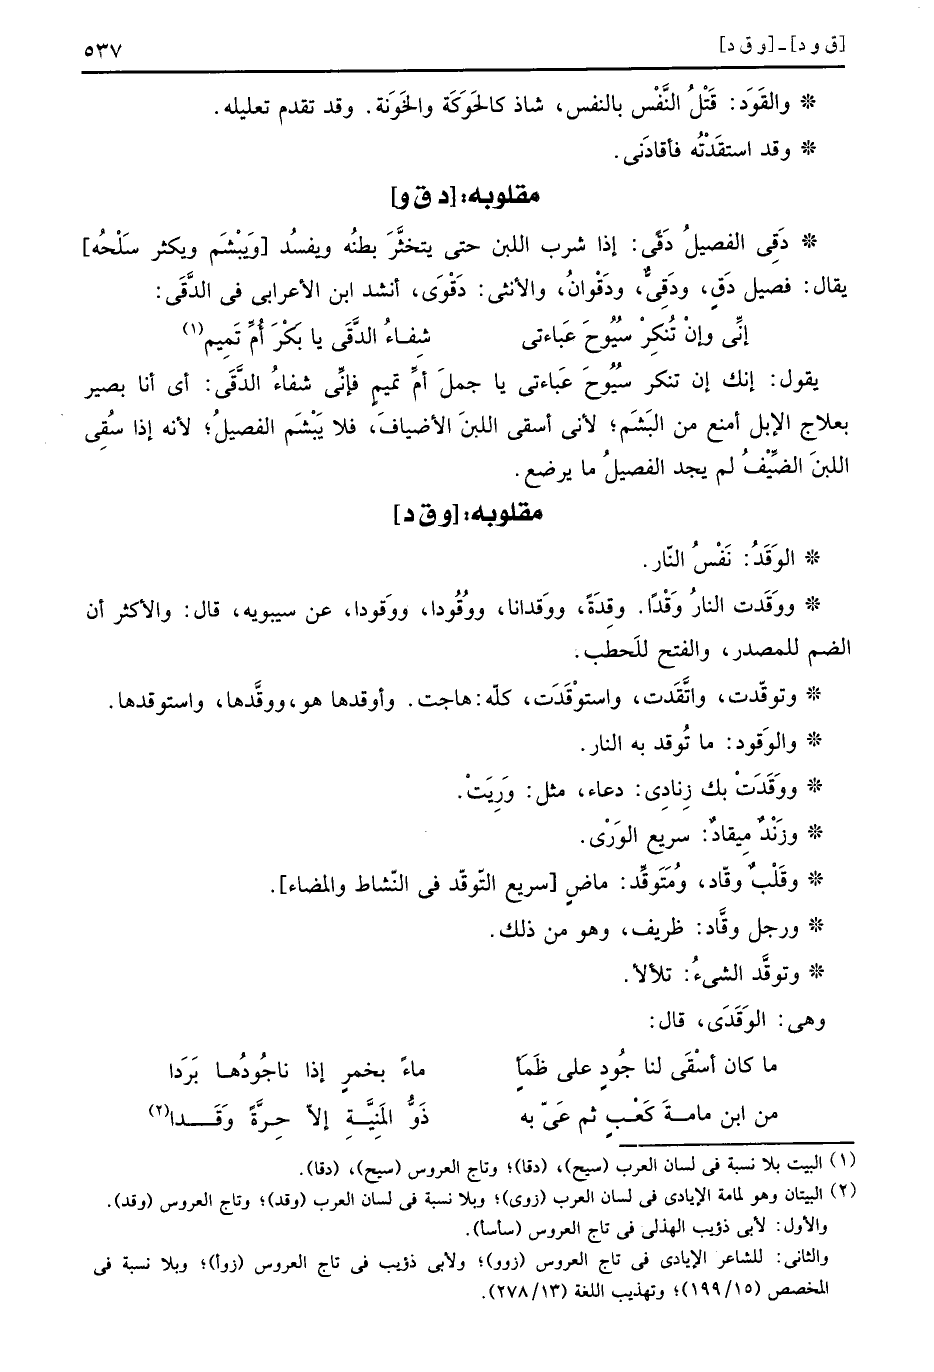 [ق و د] ـ [و ق د] ٥٣٧
* والقَوَد: قَتْلُ النَّفْس بالنفس، شاذ كالحَوَكَة والخَونَة. وقد تقدم تعليله.
* وقد استقَدْتُه فأقادَنى.
مقلوبه: [د ق و]
* دَقِى الفصيلُ دَقًى: إذا شرب اللبن حتى يتخثَّرَ بطنُه ويفسُد [وَيَبْشَم ويكثر سَلْحُه]
يقال: فصيل دَقٍ، ودَقِىٌّ، ودَقْوانُ، والأنثى: دَقْوَى، أنشد ابن الأعرابى فى الدَّقَى:
إنِّى وإنْ تُنكِرْ سُيُوحَ عَباءتى شفاءُ الدَّقَى يا بَكْرَ أُمِّ تَميمِ(١)
يقول: إنك إن تنكر سُيُوحَ عَباءتى يا جملَ أمِّ تميمٍ فإنِّى شفاءُ الدَّقَى: أى أنا بصير
بعلاج الإبل أمنع من البَشَم؛ لأنى أسقى اللبنَ الأضيافَ، فلا يَبْشَم الفصيلُ؛ لأنه إذا سقُِى
اللبنَ الضيِّفُ لم يجد الفصيلُ ما يرضع.
مقلوبه: [و ق د]
* الوَقَدُ: نَفْسُ النّار.
* ووقَدت النارُ وَقْدًا. وقِدَةً، ووقَدانا، ووقُودا، ووَقودا، عن سيبويه، قال: والأكثر أن
الضم للمصدر، والفتح للَحطب.
* وتوقّدت، واتَّقَدت، واستوْقَدَت، كلّه: هاجت. وأوقدها هو، ووقَّدها، واستوقدها.
* والوَقود: ما تُوقد به النار.
* ووقَدَتْ بك زنادِى: دعاء، مثل: وَرِيَتْ.
* وزَنْدٌ مِيقادٌ: سريع الوَرْى.
* وقَلْبٌ وقّاد، ومُتَوقِّد: ماضٍ [سريع التّوقّد فى النّشاط والمضاء].
* ورجل وقَّاد: ظريف، وهو من ذلك.
* وتوقَّد الشىءُ: تلألأ.
وهى: الوَقَدَى، قال:
ما كان أسْقَى لنا جُودٍ على ظَمَأٍ ماءً بخمرٍ إذا ناجُودُهـا بَرَدا
من ابن مامـةَ كَعْبٍ ثم عَىّ به ذَوُّ المَنِيَّـةِ إلاّ حِرةًّ وقَـــدا(٢)
(١) البيت بلا نسبة فى لسان العرب (سيح)، (دقا)؛ وتاج العروس (سيح)، (دقا).
(٢) البيتان وهو لمامة الإيادى فى لسان العرب (زوى)؛ وبلا نسبة فى لسان العرب (وقد)؛ وتاج العروس (وقد).
والأول: لأبى ذؤيب الهذلى فى تاج العروس (سأسأ).
والثانى: للشاعر الإيادى فى تاج العروس (زوو)؛ ولأبى ذؤيب فى تاج العروس (زوأ)؛ وبلا نسبة فى
المخصص (١٥/ ١٩٩)؛ وتهذيب اللغة (١٣/ ٢٧٨).